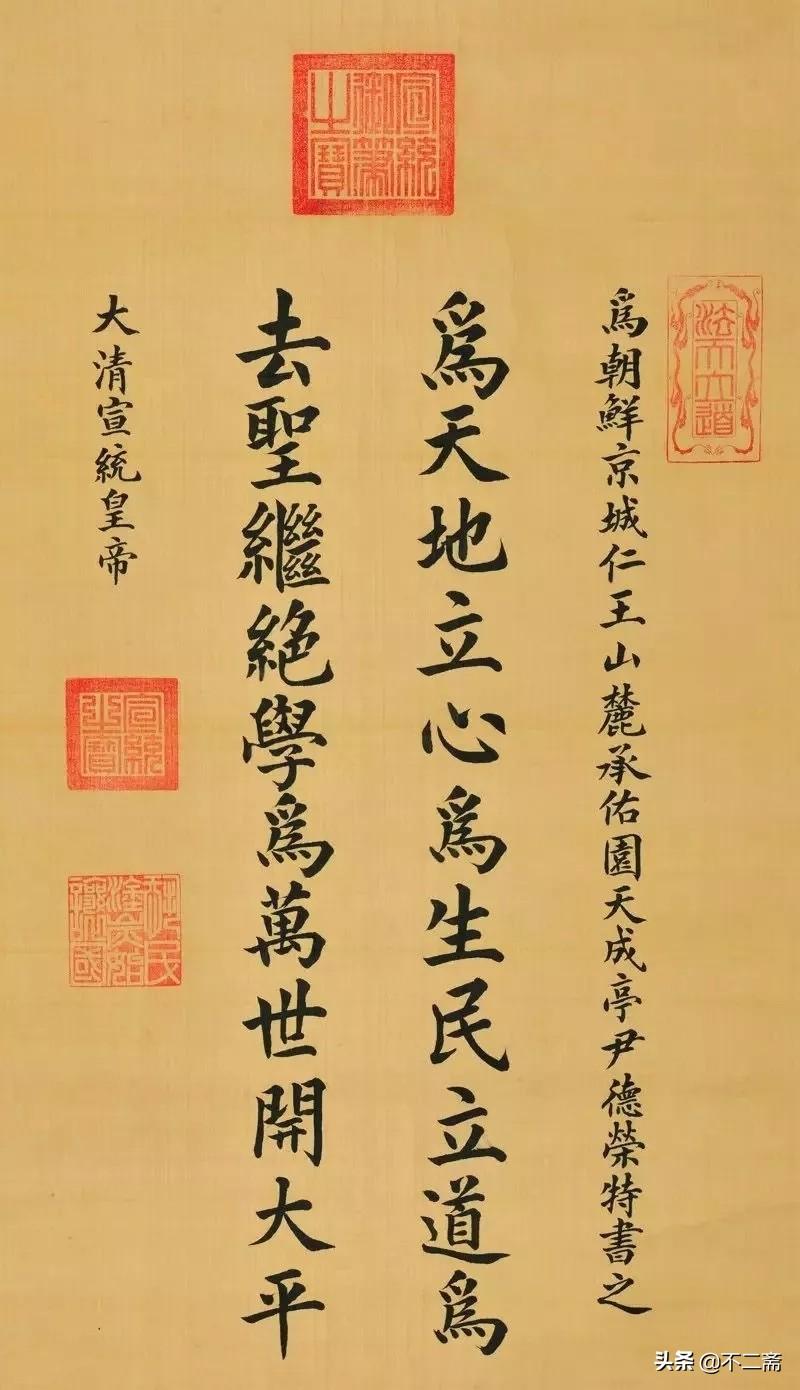 宣統御筆之寶
爲朝鮮京城仁王山麓承佑園天成亭尹德榮特書之
爲天地立心爲生民立道爲
去聖繼絶學爲萬世開大平
大清宣統皇帝
宣統之寶
头条 @不二斋